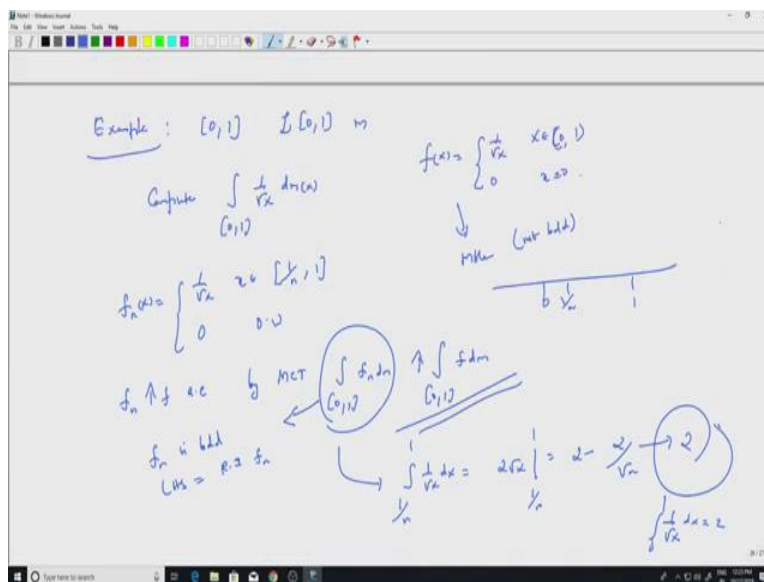 Note1 - Windows Journal
File Edit View Insert Actions Tools Help
Example : [0,1] L[0,1] m
Compute ∫[0,1] 1/√x dm(x)
f(x) = { 1/√x x∈(0,1)
0 x=0.
Mble (not bdd)
0 1/n 1
fn(x) = { 1/√x x∈ [1/n, 1]
0 o.w
fn ↑ f a.e by MCT ∫[0,1] fn dm ↑ ∫[0,1] f dm
fn is bdd
LHS = R.I fn
∫1/n^1 1/√x dx = 2√x |1/n^1 = 2 - 2/√n → 2
∫ 1/√x dx = 2
Type here to search